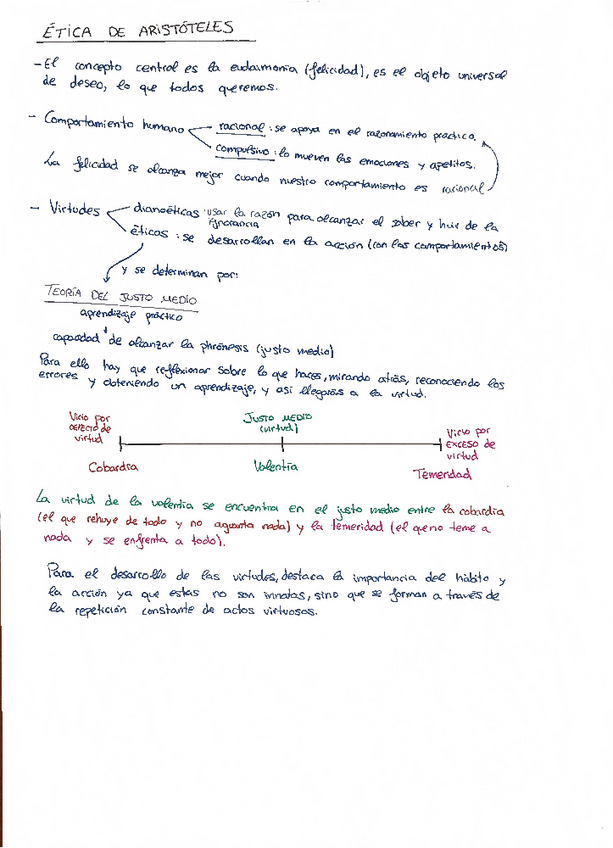 ÉTICA DE ARISTÓTELES
- El concepto central es la eudaimonia (felicidad), es el objeto universal
de deseo, lo que todos queremos.
- Comportamiento humano
racional: se apoya en el razonamiento práctico.
compulsivo: lo mueven las emociones y apetitos.
La felicidad se alcanza mejor cuando nuestro comportamiento es racional
- Virtudes
dianoéticas: usar la razón para alcanzar el saber y huir de la
ignorancia
éticas: se desarrollan en la acción (con los comportamientos)
y se determinan por:
TEORÍA DEL JUSTO MEDIO
aprendizaje práctico
capacidad de alcanzar la phrónesis (justo medio)
Para ello hay que refflexionar sobre lo que haces, mirando atrás, reconociendo los
errores y obteniendo un aprendizaje, y así llegarás a la virtud.
Vicio por
defecto de
virtud
JUSTO MEDIO
(virtud)
Vicio por
EXCESO de
virtud
Cobardía
Valentía
Temeridad
La virtud de la valentía se encuentra en el justo medio entre la cobardía
(el que rehuye de todo y no aguanta nada) y la temeridad (el que no teme a
nada y se enfrenta a todo).
Para el desarollo de las virtudes, destaca la importancia del hábito y
la acción ya que estas no son innatas, sino que se forman a través de
la repetición constante de actos virtuosos.